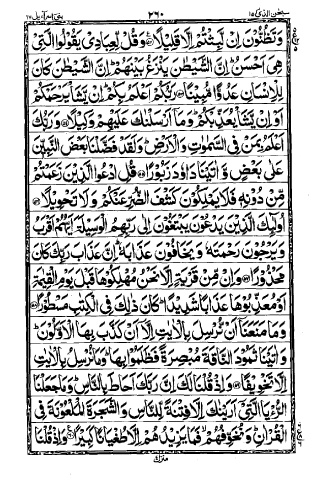 سبحٰن الذی ١٥ ٢٦٠ بنی اسرآءیل ١٧
وَتَظُنُّوْنَ اِنْ لَّبِثْتُمْ اِلَّا قَلِیْلًا۠ وَقُلْ لِّعِبَادِیْ یَقُوْلُوا الَّتِیْ
هِیَ اَحْسَنُ ؕ اِنَّ الشَّیْطٰنَ یَنْزَغُ بَیْنَهُمْ ؕ اِنَّ الشَّیْطٰنَ كَانَ
لِلْاِنْسَانِ عَدُوًّا مُّبِیْنًا رَبُّكُمْ اَعْلَمُ بِكُمْ ؕ اِنْ یَّشَاْ یَرْحَمْكُمْ
اَوْ اِنْ یَّشَاْ یُعَذِّبْكُمْ ؕ وَمَاۤ اَرْسَلْنٰكَ عَلَیْهِمْ وَكِیْلًا وَرَبُّكَ
اَعْلَمُ بِمَنْ فِی السَّمٰوٰتِ وَالْاَرْضِ ؕ وَلَقَدْ فَضَّلْنَا بَعْضَ النَّبِیّٖنَ
عَلٰی بَعْضٍ وَّاٰتَیْنَا دَاوٗدَ زَبُوْرًا قُلِ ادْعُوا الَّذِیْنَ زَعَمْتُمْ
مِّنْ دُوْنِهٖ فَلَا یَمْلِكُوْنَ كَشْفَ الضُّرِّ عَنْكُمْ وَلَا تَحْوِیْلًا
اُولٰٓئِكَ الَّذِیْنَ یَدْعُوْنَ یَبْتَغُوْنَ اِلٰی رَبِّهِمُ الْوَسِیْلَةَ اَیُّهُمْ اَقْرَبُ
وَیَرْجُوْنَ رَحْمَتَهٗ وَیَخَافُوْنَ عَذَابَهٗ ؕ اِنَّ عَذَابَ رَبِّكَ كَانَ
مَحْذُوْرًا وَاِنْ مِّنْ قَرْیَةٍ اِلَّا نَحْنُ مُهْلِكُوْهَا قَبْلَ یَوْمِ الْقِیٰمَةِ
اَوْ مُعَذِّبُوْهَا عَذَابًا شَدِیْدًا ؕ كَانَ ذٰلِكَ فِی الْكِتٰبِ مَسْطُوْرًا
وَمَا مَنَعَنَاۤ اَنْ نُّرْسِلَ بِالْاٰیٰتِ اِلَّاۤ اَنْ كَذَّبَ بِهَا الْاَوَّلُوْنَ ؕ
وَاٰتَیْنَا ثَمُوْدَ النَّاقَةَ مُبْصِرَةً فَظَلَمُوْا بِهَا ؕ وَمَا نُرْسِلُ بِالْاٰیٰتِ
اِلَّا تَخْوِیْفًا وَاِذْ قُلْنَا لَكَ اِنَّ رَبَّكَ اَحَاطَ بِالنَّاسِ ؕ وَمَا جَعَلْنَا
الرُّءْیَا الَّتِیْۤ اَرَیْنٰكَ اِلَّا فِتْنَةً لِّلنَّاسِ وَالشَّجَرَةَ الْمَلْعُوْنَةَ فِی
الْقُرْاٰنِ ؕ وَنُخَوِّفُهُمْ ۙ فَمَا یَزِیْدُهُمْ اِلَّا طُغْیَانًا كَبِیْرًا۠ وَاِذْ قُلْنَا
منزل